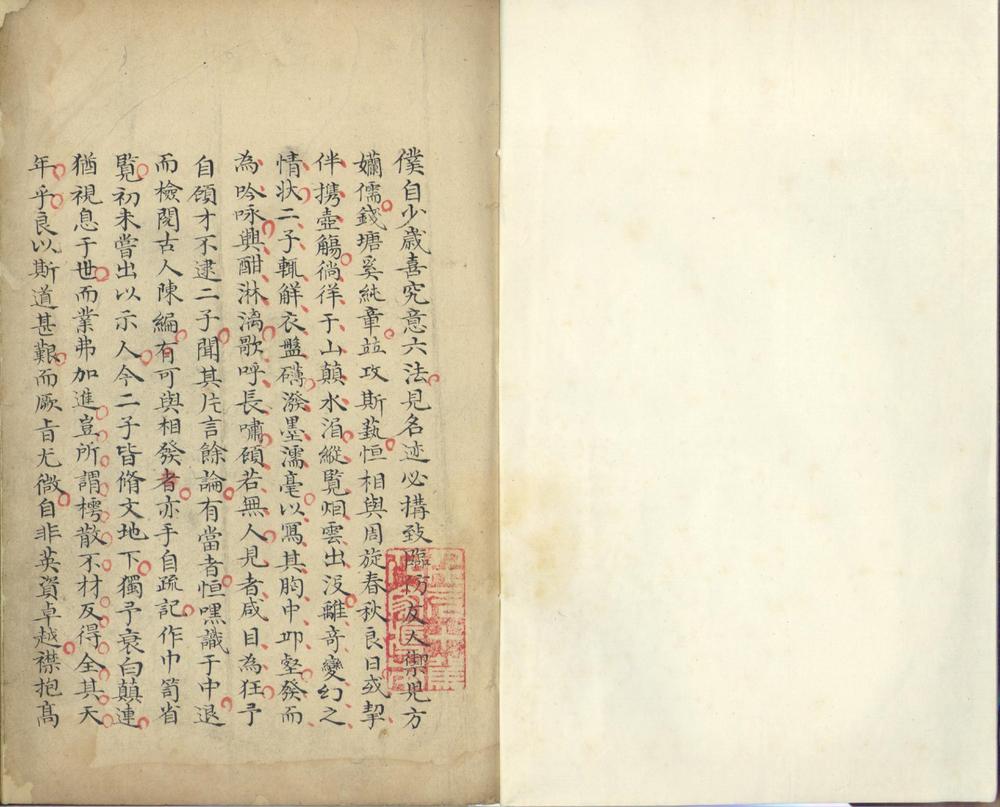 僕自少歲喜究意六法見名迹必搆致臨仿友人禦兒方
嬭儒錢塘奚純章竝攻斯蓺恒相與周旋春秋良日或挈
伴攜壺觴徜徉于山巔水湄縱覽烟雲出沒離奇變幻之
情狀二子輒解衣盤礴潑墨濡毫以寫其胸中邱壑發而
為吟咏興酣淋漓歌呼長嘯頋若無人見者咸目為狂予
自頋才不逮二子聞其片言餘論有當者恒嘿識于中退
而檢閱古人陳編有可與相發者亦手自疏記作巾笥省
覽初未嘗出以示人今二子皆脩文地下獨予衰白顛連
猶視息于世而業弗加進豈所謂樗散不材反得全其天
年乎良以斯道甚艱而厥旨尤微自非英資卓越襟抱高